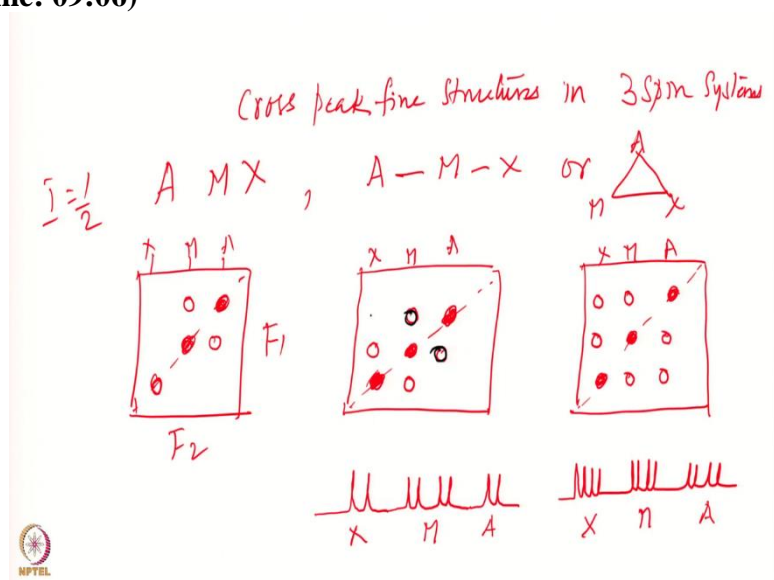 Time: 09:06)
Cross peak fine Structures in 3 Spin Systems
I=1/2 A M X , A — M — X or A
M X
X M A
X M A
X M A
F1
F2
X M A
X M A
NPTEL